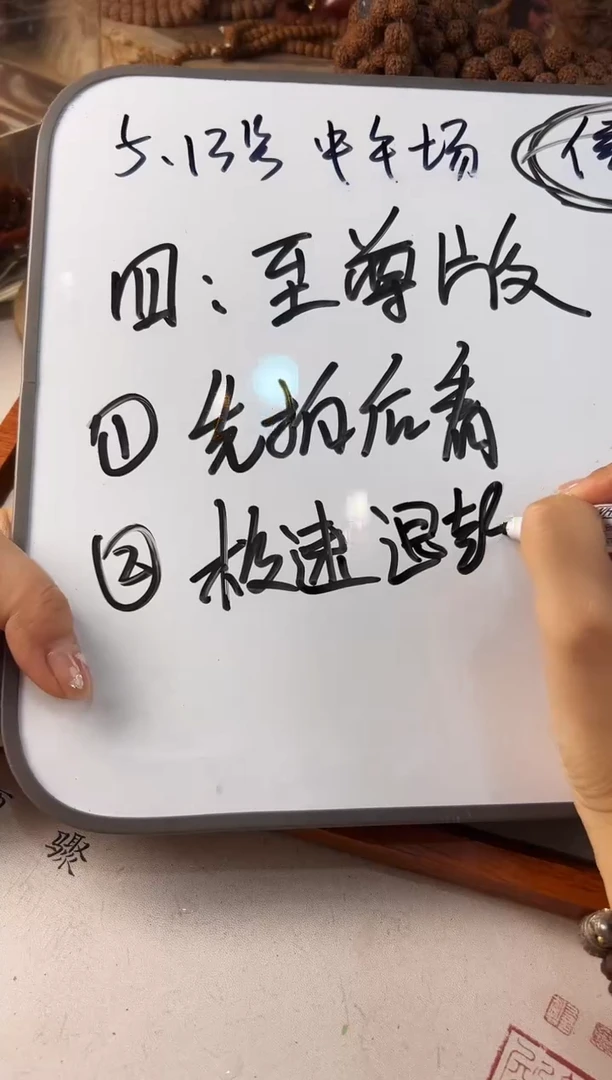 5.13号 中午场
四：至尊版
① 先拍后看
② 极速退款
骤